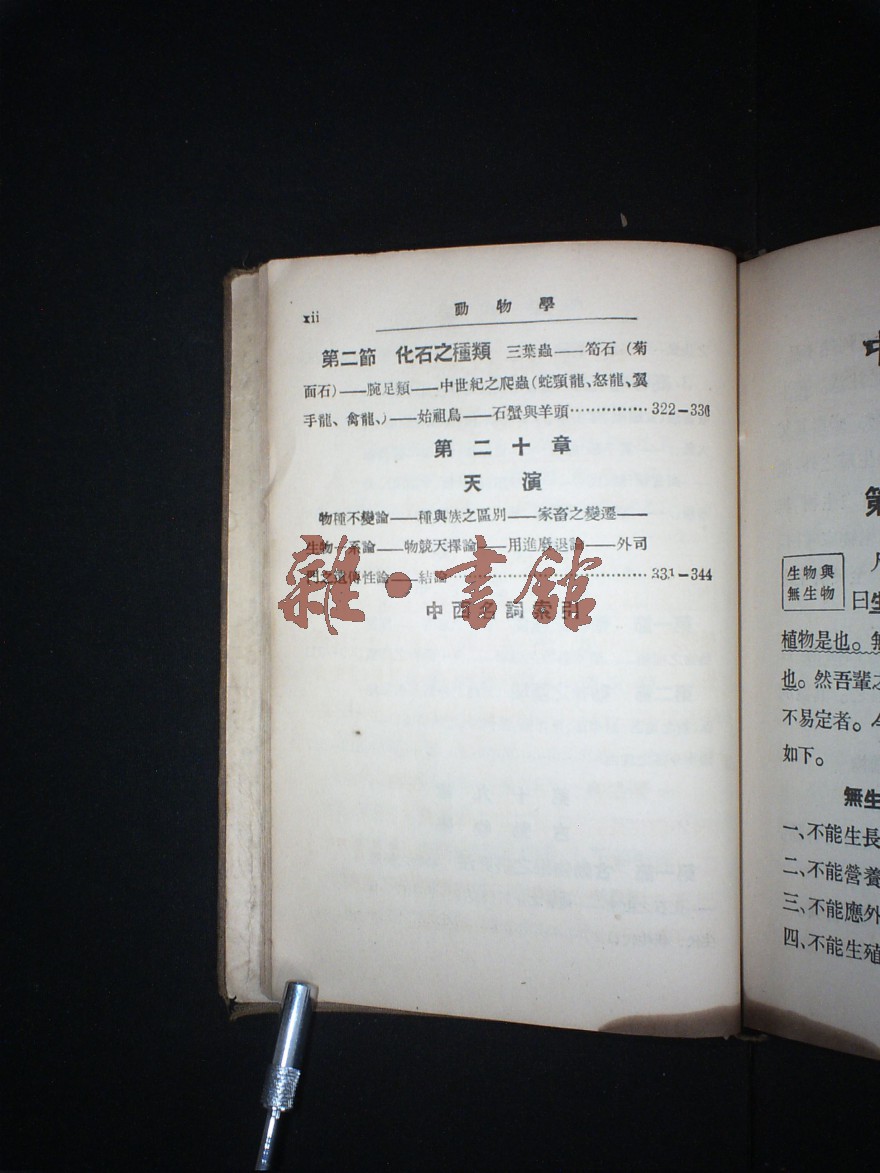 xii
動物學
第二節 化石之種類 三葉蟲——筍石（菊
面石）——腕足類——中世紀之爬蟲（蛇頸龍、怒龍、翼
手龍、禽龍、）——始祖鳥——石蟹與羊頭……………322－330
第二十章
天演
物種不變論——種與族之區別——家畜之變遷——
生物一系論——物競天擇論——用進廢退論——外司
門之遺傳性論——結論……………331－344
中西名詞索引
雜·書館
第
生物與
無生物
凡
曰生
植物是也。無
也。然吾輩之
不易定者。今
如下。
無生
一、不能生長
二、不能營養
三、不能應外
四、不能生殖